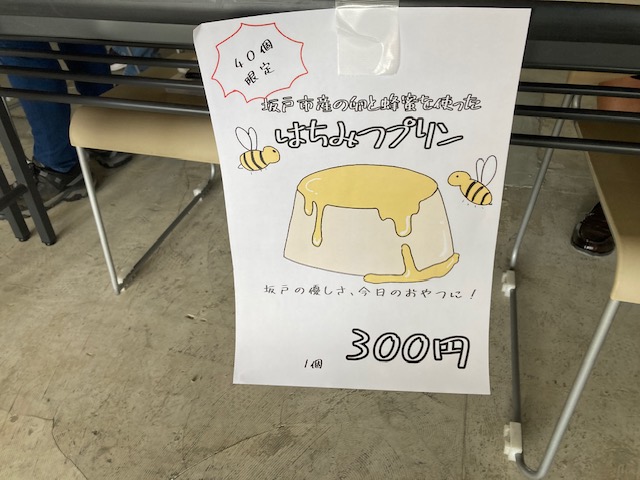 40個
限定
坂戸市産の卵と蜂蜜を使った
はちみつプリン
坂戸の優しさ、今日のおやつに！
1個 300円